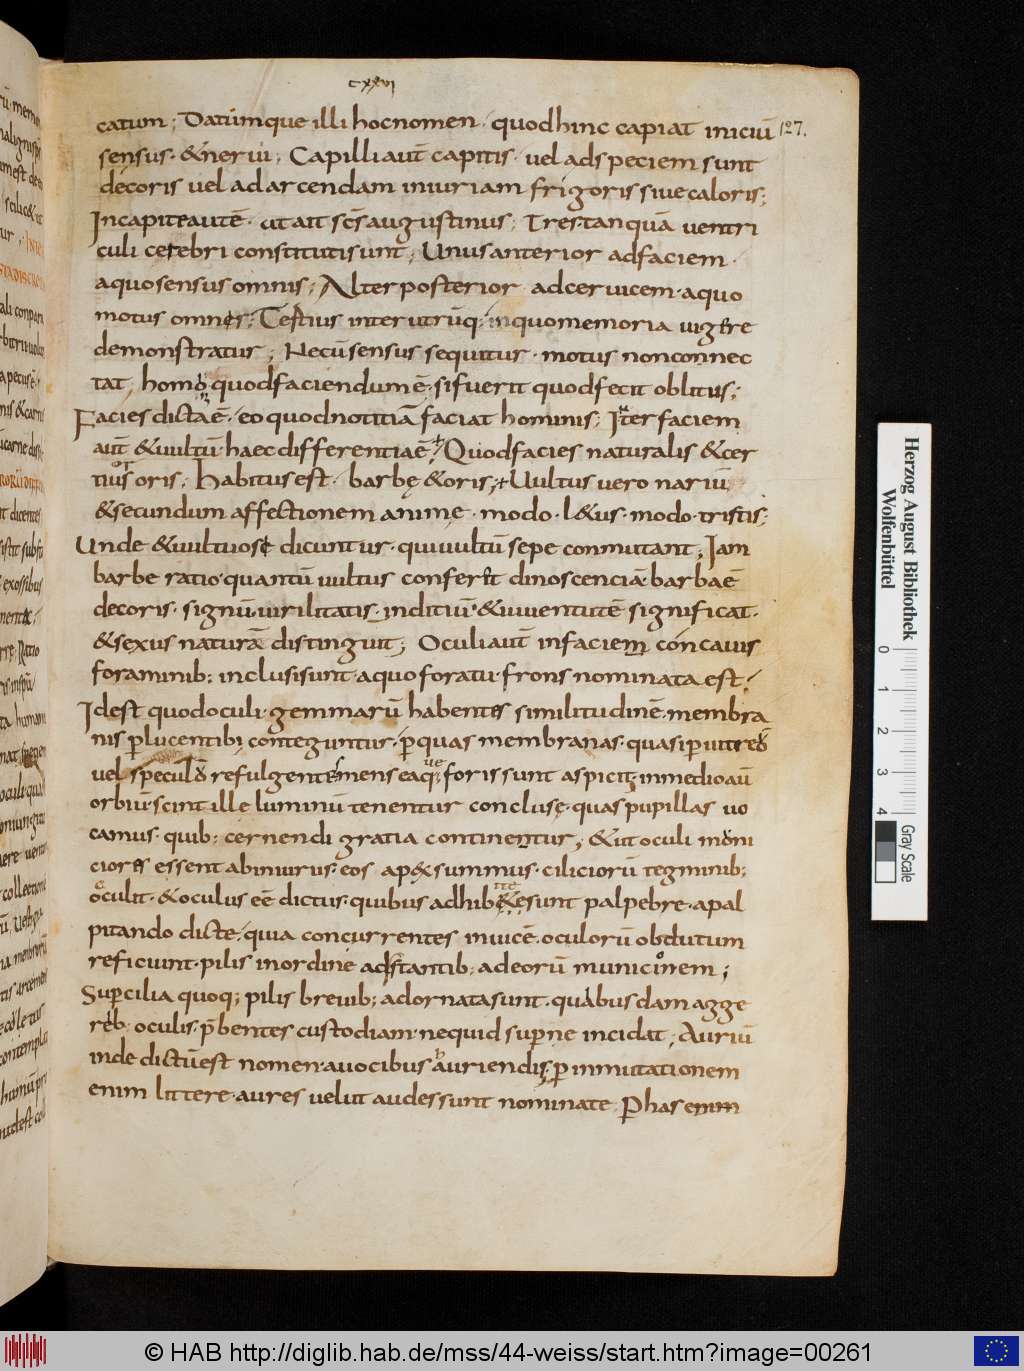 cxxvi
127.
catum; Datumque illi hocnomen· quodhinc capiat iniciū
sensus· &nerui; Capilliaut̄ capitis· uel adspeciem sunt
decoris uel adarcendam iniuriam frigoris siue caloris;
Incapiteautē· ut ait scs̄ augustinus; Trestanquā uentri
culi cerebri constitutisunt; Unusanterior adfaciem·
aquosensus omnis; Alter posterior adceruicem·aquo
motus omnis; Tertius inter utrūq; inquomemoria uigere
demonstratur; Necūsensus sequitur· motus nonconnec
tat homo quodfaciendumē· sifuerit quodfecit oblitus;
Facies dictaē· eo quodnotitiā faciat hominis; Iter faciem
aut̄ &uultū haec differentiaē; Quodfacies naturalis &cer
tius oris; Habitus est· barbę &oris; Uultus uero nariū
&secundum affectionem animę· modo· l&us· modo· tristis;
Unde &uultuose dicuntur· quiuultū sepe conmutant; Iam
barbe ratio·quantū uultus confert dinoscenciā·barbaē
decoris· signū·uirilitatis· inditiū·&iuuentutē significat·
&sexus naturā distinguit; Oculiaut̄ infaciem concauis
foraminib; inclusisunt·aquoforatu·frons nominata est;
Idest quodoculi·gemmarū habentes similitudinē·membra
nis p̄lucentib; conteguntur· p̄quas membranas·quasip̄uitreū
uel speculū refulgentē mens eaq; foris sunt aspicit; inmedioaū
orbiū·scintille luminū tenentur conclusę·quas pupillas uo
camus· quib; cernendi gratia continentur; &ut oculi muni
ciores essent abiniuriis·eos apex summus·ciliciorū tegminib;
oculit·&oculus eē dictus·quibus adhib&esunt palpebre·apal
pitando dicte·quia concurrentes inuicē·oculorū obdutum
reficiunt·pilis inordine adstantib; adeorū municionem;
Sup̄cilia quoq; pilis breuib; adornatasunt·quibusdam agge
rib; oculis·p̄bentes custodiam·nequid sup̄ne incidat; Auriū
inde dictūest nomen·auocibus auriendis; p̄ inmutationem
enim littere·aures uelut audessunt nominate· P̄has enim
Herzog August Bibliothek
Wolfenbüttel
0 1 2 3 4
Gray Scale
© HAB http://diglib.hab.de/mss/44-weiss/start.htm?image=00261